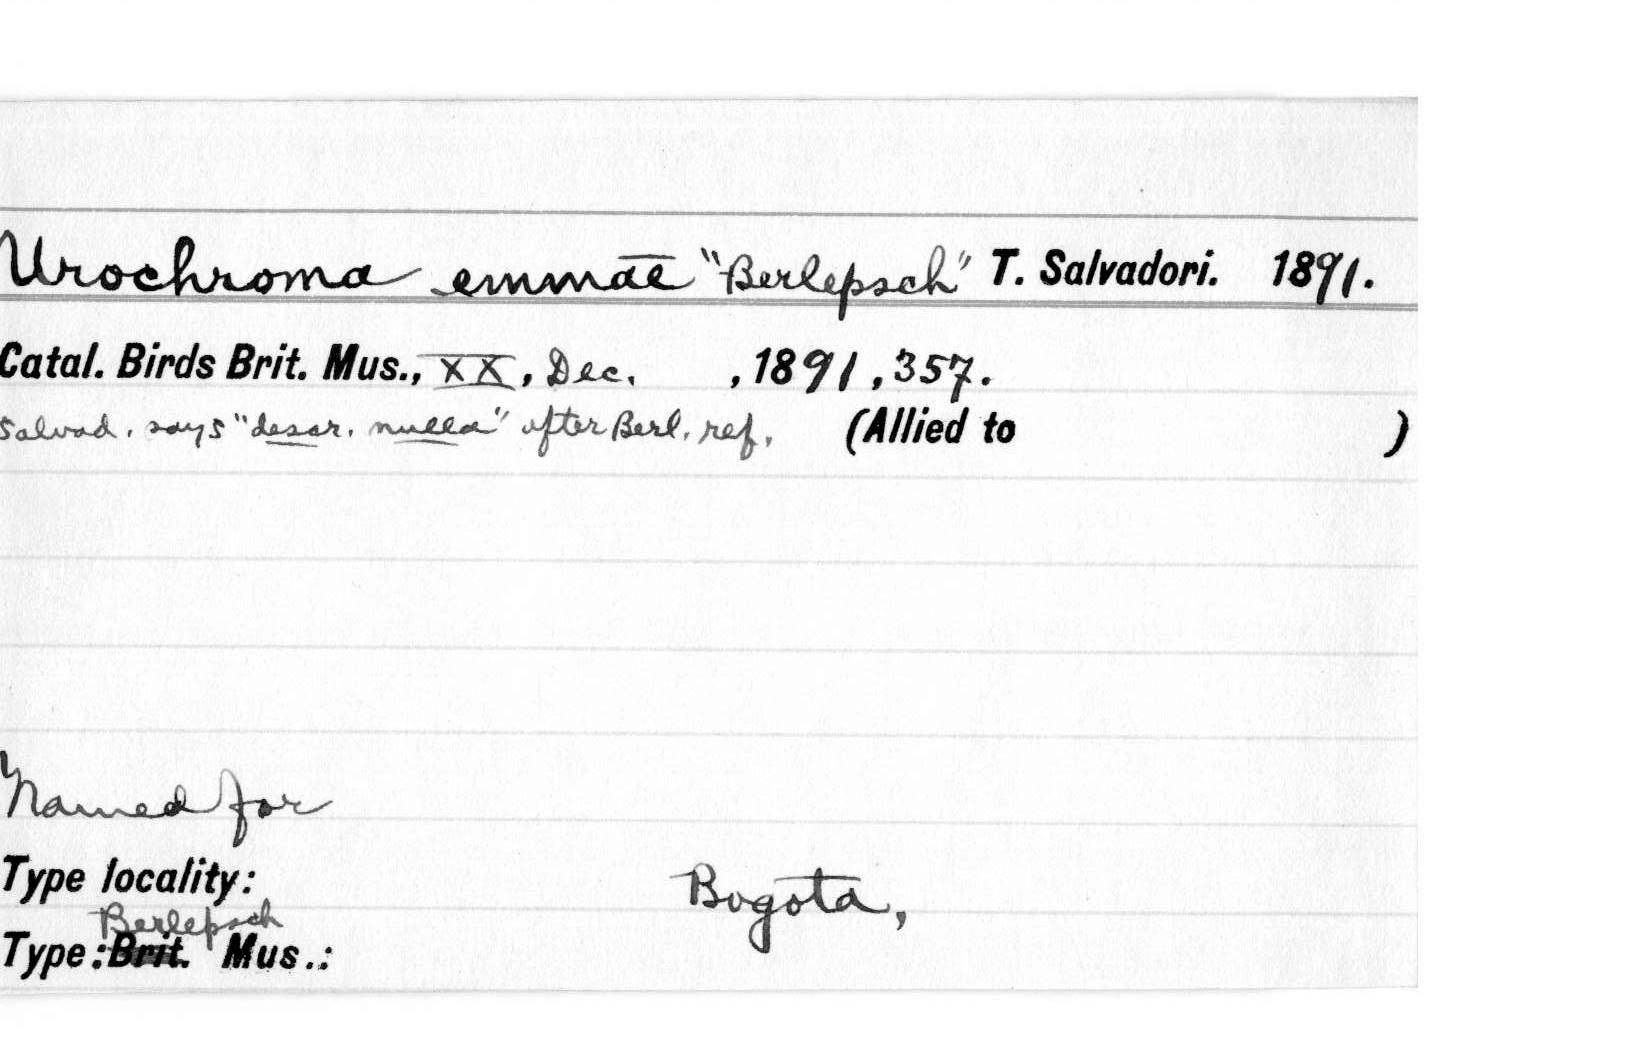 Urochroma emmae "Berlepsch" T. Salvadori. 1891.
Catal. Birds Brit. Mus., XX, Dec. , 1891, 357.
Salvad. says "descr. nulla" after Berl. ref. (Allied to )
Named for
Type locality: Bogota,
Berlepsch
Type: Brit. Mus.: